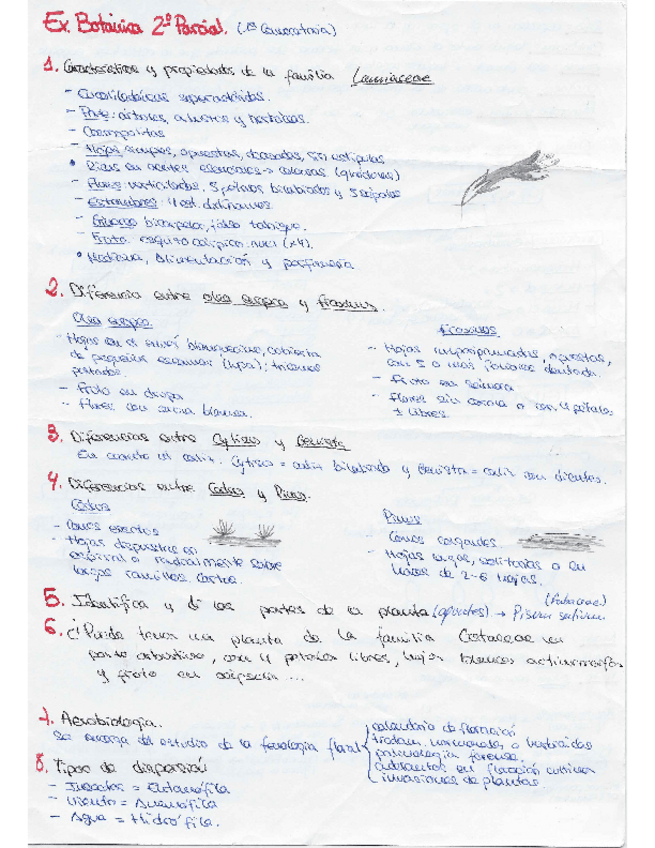 Ex. Botánica 2º Parcial. (1ª Convocatoria)
1. Características y propiedades de la familia Lamiaceae
- Eucotiledóneas superasteridas.
- Porte: árboles, arbustos y herbáceas.
- Cosmopolitas
- Hojas simples, opuestas, decusadas, sin estípulas
• Ricas en aceites esenciales → olorosas (glándulas)
- Flores: verticiladas, 5 pétalos bilabiados y 5 sépalos
- Estambres: 4 est. didínamos.
- Gineceo bicarpelar, falso tabique.
- Fruto: esquizocárpico: nuez (x4).
• Medicina, alimentación y perfumería
2. Diferencia entre olea europea y fraxinus.
Olea europea.
- Hojas en el envés blanquecino, cubierta
de pequeñas escamas (lupa);
- Fruto en drupa
- Flores con corola blanca.
Fraxinus
- Hojas imparipinnadas, opuestas,
con 5 o más foliolos dentada.
- Fruto en sámara
- Flores sin corola o con 4 pétalos
± libres.
3. Diferencias entre Cytisus y Genista
En cuanto al cáliz. Cytisus = cáliz bilabiado y Genista = cáliz con dientes.
4. Diferencias entre Cedrus y Pinus.
Cedrus
- Conos erectos
- Hojas dispuestas en
espiral o radialmente sobre
largas ramillas cortas.
Pinus
- Conos colgantes.
- Hojas largas, solitarias o en
haces de 2-6 hojas.
5. Identifica y di las partes de la planta (apuntes) → Pisum sativum (Fabaceae)
6. ¿Puede tener una planta de la familia Cistaceae un
porte arbustivo, con 4 pétalos libres, hojas blancas actinomorfas
y fruto en cápsula ...
7. Aerobiología.
Se encarga del estudio de la fenología floral
calendario de floración
palinología forense
invasiones de plantas.
8. Tipos de dispersión
- Insectos = Entomófila
- Viento = Anemófila
- Agua = Hidrófila.